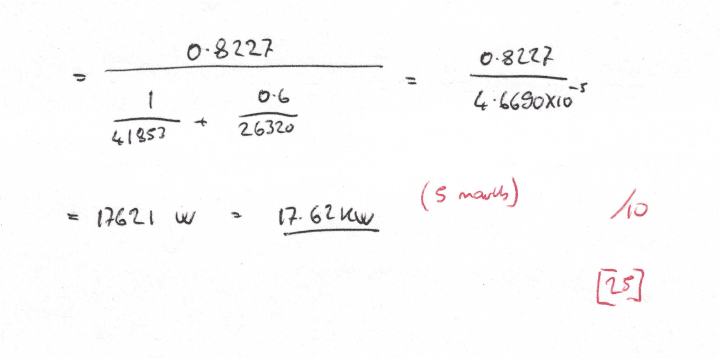 = 0.8227 / (1/41853 + 0.6/26320) = 0.8227 / 4.6690x10^-5
= 17621 W = 17.62 KW (5 marks) /10
[25]